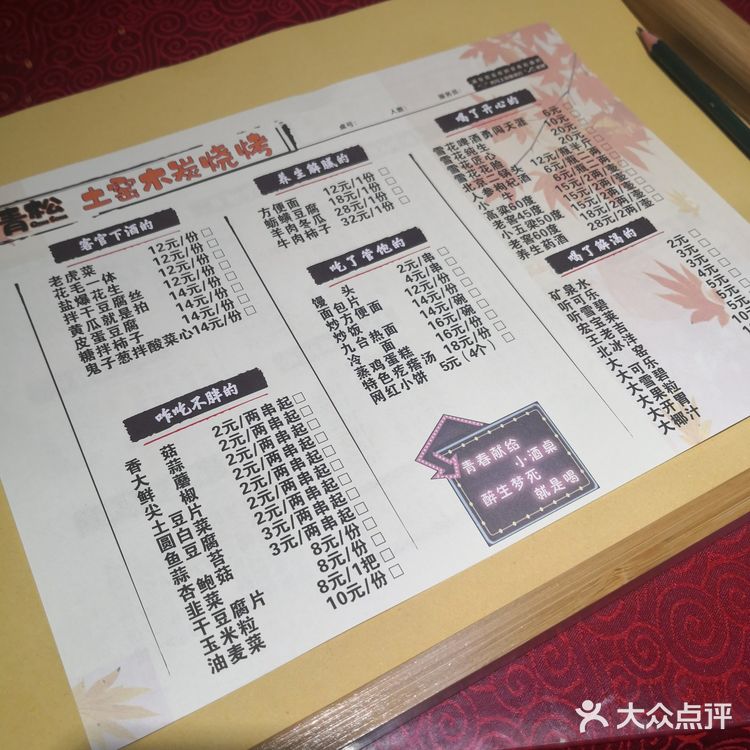 青松 土窑木炭烧烤
桌号： 人数： 服务员：
客官下酒的
老虎菜 12元/份
花毛一体 12元/份
12元/份
12元/份
14元/份
14元/份
14元/份
鬼子葱拌酸菜心 14元/份
咋吃不胖的
香菇 2元/两串起
大蒜 2元/两串起
鲜蘑 2元/两串起
尖椒 2元/两串起
土豆片 2元/两串起
圆白菜 2元/两串起
鱼豆腐 3元/两串起
蒜苔 3元/两串起
杏鲍菇 8元/份
韭菜 8元/份
干豆腐 8元/1把
玉米粒 10元/份
油麦菜
养生解腻的
方便面 12元/1份
蛎蟥豆腐 18元/1份
羊肉冬瓜 28元/1份
牛肉柿子 32元/1份
吃了管饱的
馒头 2元/串
面包片 4元/串
炒方便面 12元/份
炒饭 14元/份
九台热面 14元/碗
冷面 16元/碗
蒸鸡蛋糕 16元/份
特色疙瘩汤 18元/份
网红小饼 5元（4个）
青春献给
小酒桌
醉生梦死
就是喝
喝了开心的
雪花啤酒勇闯天涯 6元
雪花纯生 10元
雪花匠心 20元
北京二锅头
人参枸杞酒
小牛
高粱60度
老窖45度
小五粮50度
老窖60度
养生药酒 28元/2两
喝了解渴的
矿泉水 2元
听可乐 3元
听雪碧
宏宝莱
王老吉
北冰洋
大可乐
大雪碧
大果粒
大开胃
大椰汁
大众点评